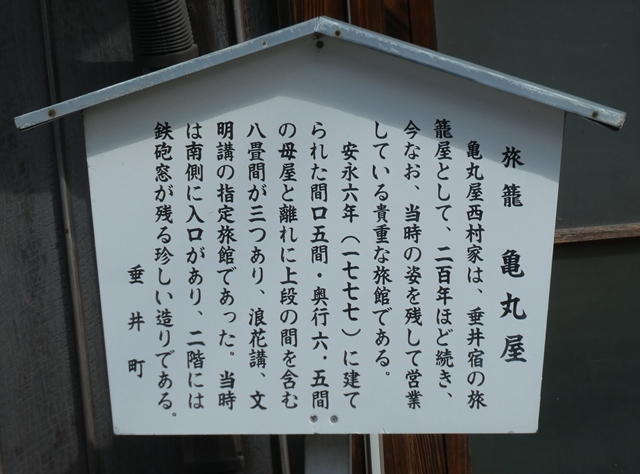 旅籠　亀丸屋
亀丸屋西村家は、垂井宿の旅
籠屋として、二百年ほど続き、
今なお、当時の姿を残して営業
している貴重な旅館である。
安永六年（一七七七）に建て
られた間口五間・奥行六・五間
の母屋と離れに上段の間を含む
八畳間が三つあり、浪花講、文
明講の指定旅館であった。当時
は南側に入口があり、二階には
鉄砲窓が残る珍しい造りである。
垂井町